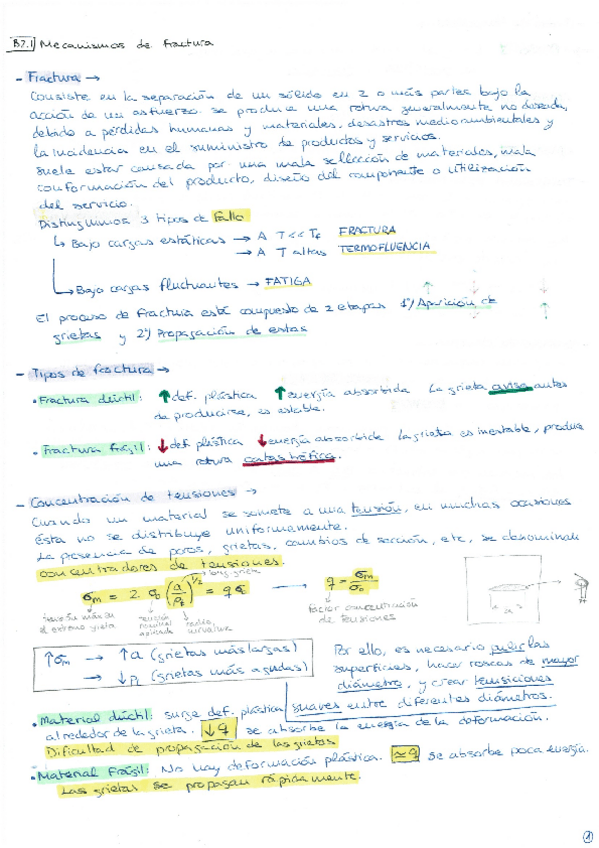 B2.1 Mecanismos de fractura
- Fractura →
Consiste en la separación de un sólido en 2 o más partes bajo la
acción de un esfuerzo. Se produce una rotura generalmente no deseada,
debido a pérdidas humanas y materiales, desastres medioambientales y
la incidencia en el suministro de productos y servicios.
Suele estar causada por una mala selección de materiales, mala
conformación del producto, diseño del componente o utilización
del servicio.
Distinguimos 3 tipos de fallo
↳ Bajo cargas estáticas → A T << Tf FRACTURA
→ A T altas TERMOFLUENCIA
↳ Bajo cargas fluctuantes → FATIGA
El proceso de fractura está compuesto de 2 etapas 1º) Aparición de
grietas y 2º) Propagación de estas
- Tipos de fractura →
• Fractura dúctil: ↑ def. plástica ↑ energía absorbida La grieta avisa antes
de producirse, es estable.
• Fractura frágil: ↓ def. plástica ↓ energía absorbida la grieta es inestable, produce
una rotura catastrófica.
- Concentración de tensiones →
Cuando un material se somete a una tensión, en muchas ocasiones
ésta no se distribuye uniformemente.
La presencia de poros, grietas, cambios de sección, etc, se denominan
concentradores de tensiones.
long grieta
σm = 2 σ0 (a/ρt)^1/2 = q σ0 → q = σm/σ0
tensión máx en el extremo grieta
tensión nominal aplicada
radio curvatura
Factor concentración
de tensiones
a
↑σm → ↑a (grietas más largas)
→ ↓ρt (grietas más agudas)
Por ello, es necesario pulir las
superficies, hacer roscas de mayor
diámetro, y crear transiciones
suaves entre diferentes diámetros.
• Material dúctil: surge def. plástica
alrededor de la grieta. ↓q se absorbe la energía de la deformación.
Dificultad de propagación de las grietas
• Material Frágil: No hay deformación plástica. ≃q Se absorbe poca energía.
Las grietas se propagan rápidamente.
1